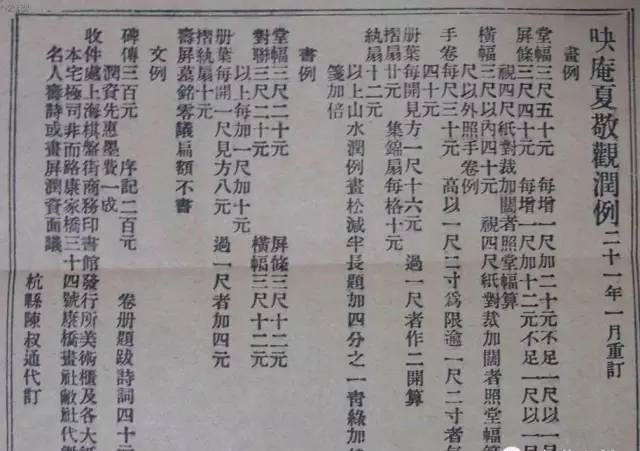 吷庵夏敬觀潤例 二十一年一月重訂
畫例
堂幅三尺五十元 每增一尺加二十元不足一尺以一
屏條三尺四十元 每增一尺加十二元不足一尺以一
視四尺紙對裁加闊者照堂幅算
橫幅三尺以內四十元 視四尺紙對裁加闊者照堂幅
尺以外照手卷例
手卷每尺三十元 高以一尺二寸爲限逾一尺二寸者每
四十元
册葉每開見方一尺十六元 過一尺者作二開算
摺扇廿元 集錦扇每格十元
紈扇十二元
以上山水潤例畫松減半長題加四分之一靑綠加
箋加倍
書例
堂幅三尺二十元 屏條三尺十二元
對聯三尺二十元 橫幅三尺十二元
以上每加一尺加十元
册葉每開一尺見方八元 過一尺者加四元
摺紈扇十元
壽屏墓銘零議扁額不書
文例
碑傳三百元 序記二百元 卷册題跋詩詞四十元
潤資先惠墨費一成
收件處上海棋盤街商務印書館發行所美術櫃及各大紙
本宅極司非而路康家橋三十四號康橋畫社敝社代
名人壽詩或畫屏潤資面議
杭縣陳叔通代訂